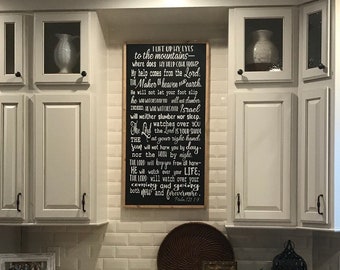 I LIFT UP MY EYES
to the mountains—
where does MY HELP COME FROM?
My help comes from the Lord,
THE Maker OF heaven AND earth.
He will not let your foot slip
he who watches over you will not slumber
he who watches over Israel
will neither slumber nor sleep.
The Lord watches over YOU
THE LORD IS YOUR SHADE
at your right hand
THE sun will not harm you by day
nor THE moon by night.
THE LORD will keep you from all harm
HE will watch over your LIFE;
THE LORD will watch over your
coming and going
both now and forevermore.
Psalm 121:1-8